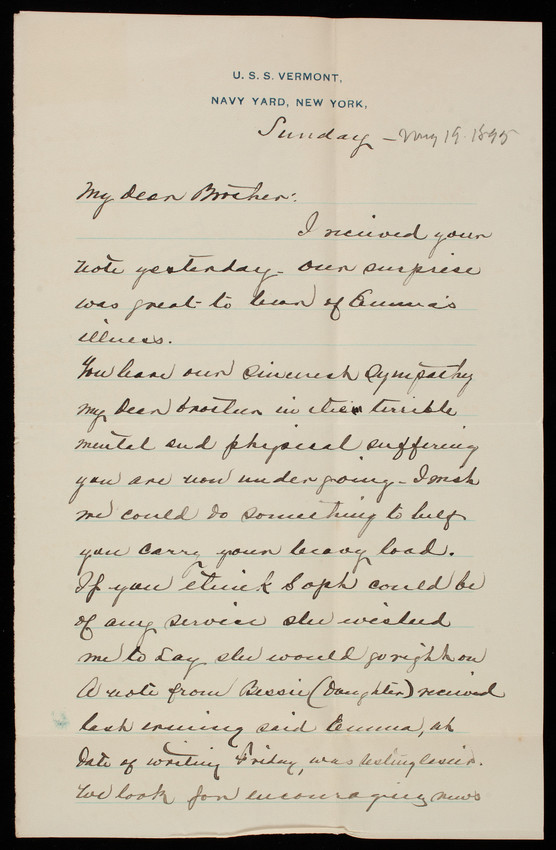 U. S. S. VERMONT,
NAVY YARD, NEW YORK,
Sunday - May 19. 1895
My dear Brother:
I received your
note yesterday - our surprise
was great to hear of Emma's
illness.
You have our sincerest sympathy
my dear brother in this terrible
mental and physical suffering
you are now under going - I wish
we could do something to help
you carry your heavy load.
If you think Soph could be
of any service she wished
me to say she would go right on
A note from Bessie (Daughter) received
last evening said Emma, at
date of writing Friday, was resting easier.
We look for encouraging news